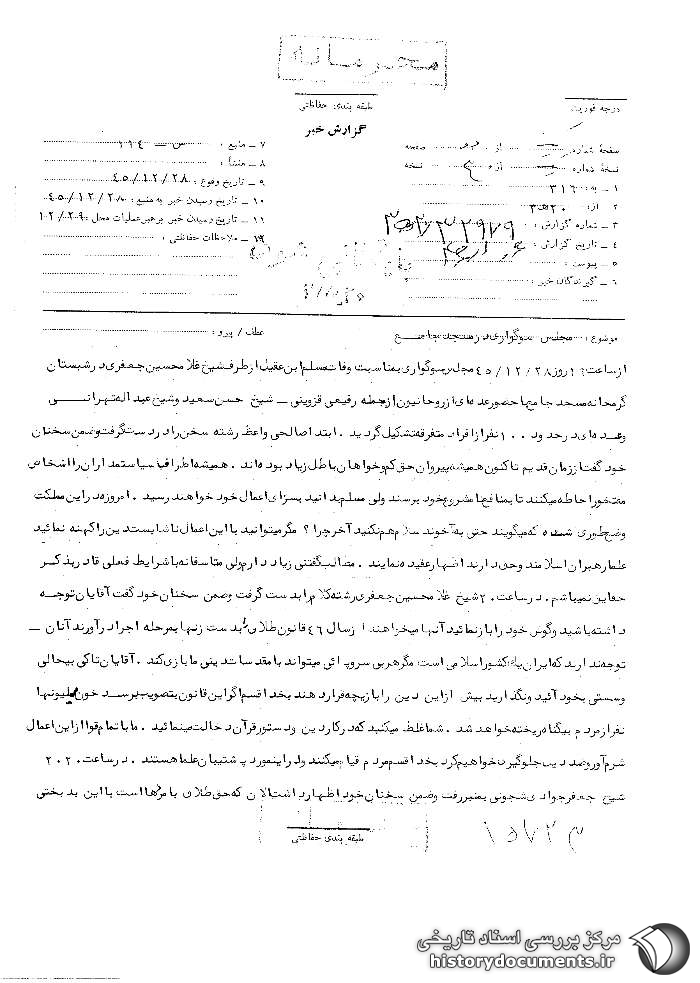 محرمانه
طبقه بندی حفاظتی
درجه فوریت
گزارش خبر
صفحهٔ شماره از صفحه
نسخهٔ شماره از نسخه
۱ - به : ۳۱۶
۲ از : ۲۰ ه ۳
۳ - شماره گزارش :
۴ - تاریخ گزارش :
۵ - پیوست :
۶ - گیرندگان خبر :
۷ - منبع : س - ۱۱۴
۸ - منشأ :
۹ - تاریخ وقوع : ۴۵/۱۲/۲۸
۱۰ - تاریخ رسیدن خبر به منبع : ۴۵/۱۲/۲۸
۱۱ - تاریخ رسیدن خبر برهبر عملیات محل : ۱۲/۲۹
۱۲ - ملاحظات حفاظتی :
موضوع : مجلس سوگواری در مسجد جامع
عطف / پیرو :
از ساعت ۱۰ روز ۴۵/۱۲/۲۸ مجلس سوگواری بمناسبت وفات مسلم ابن عقیل از طرف شیخ غلامحسین جعفری در شبستان
گرمخانه مسجد جامع با حضور عده ای از روحانیون از جمله رفیعی قزوینی - شیخ حسن سعید و شیخ عبداله تهرانی
و عده ای در حدود ۱۰۰ نفر از افراد متفرقه تشکیل گردید . ابتدا صالحی واعظ رشته سخن را در دست گرفت و ضمن سخنان
خود گفت از زمان قدیم تا کنون همیشه پیروان حق کم و خواهان باطل زیاد بوده اند . همیشه اطراف سیاستمداران را اشخاص
مفتخور احاطه میکنند تا بمنافع نامشروع خود برسند ولی مسلم بدانید بسزای اعمال خود خواهند رسید . امروزه در این مملکت
وضع طوری شده که میگویند حتی به آخوند سلام هم نکنید آخر چرا ؟ مگر میتوانید با این اعمال ناشایست دین را کهنه نمائید
علما رهبران اسلامند و حق دارند اظهار عقیده نمایند . مطالب گفتنی زیاد دارم ولی متاسفانه با شرایط فعلی قادر بذکر
حقایق نمیباشم . در ساعت ۲۰ شیخ غلامحسین جعفری رشته کلام را بدست گرفت و ضمن سخنان خود گفت آقایان توجه
داشته باشید و گوش خود را باز نمائید آنها میخواهند از سال ۴۶ قانون طلاق را بدست زنها بمرحله اجرا در آورند آنان -
توجه ندارند که ایران یک کشور اسلامی است مگر هر بی سر و پائی میتواند با مقدسات دینی ما بازی کند . آقایان تا کی بیحالی
و سستی بخود آئید و نگذارید بیش از این دین را بازیچه قرار دهند بخدا قسم اگر این قانون بتصویب برسد خون ملیونها
نفر از مردم بیگناه ریخته خواهد شد . شما غلط میکنید که در کار دین و دستور قرآن دخالت مینمائید . ما با تمام قوا از این اعمال
شرم آور و ضد دین جلوگیری خواهیم کرد بخدا قسم مردم قیام میکنند و در اینمورد پشتیبان علما هستند . در ساعت ۲۰۲۰
شیخ جعفر جوادی شجونی بمنبر رفت و ضمن سخنان خود اظهار داشت الان که حق طلاق با مردها است با این بدبختی
طبقه بندی حفاظتی
۱۵۷۲۳
مرکز بررسی اسناد تاریخی
historydocuments.ir